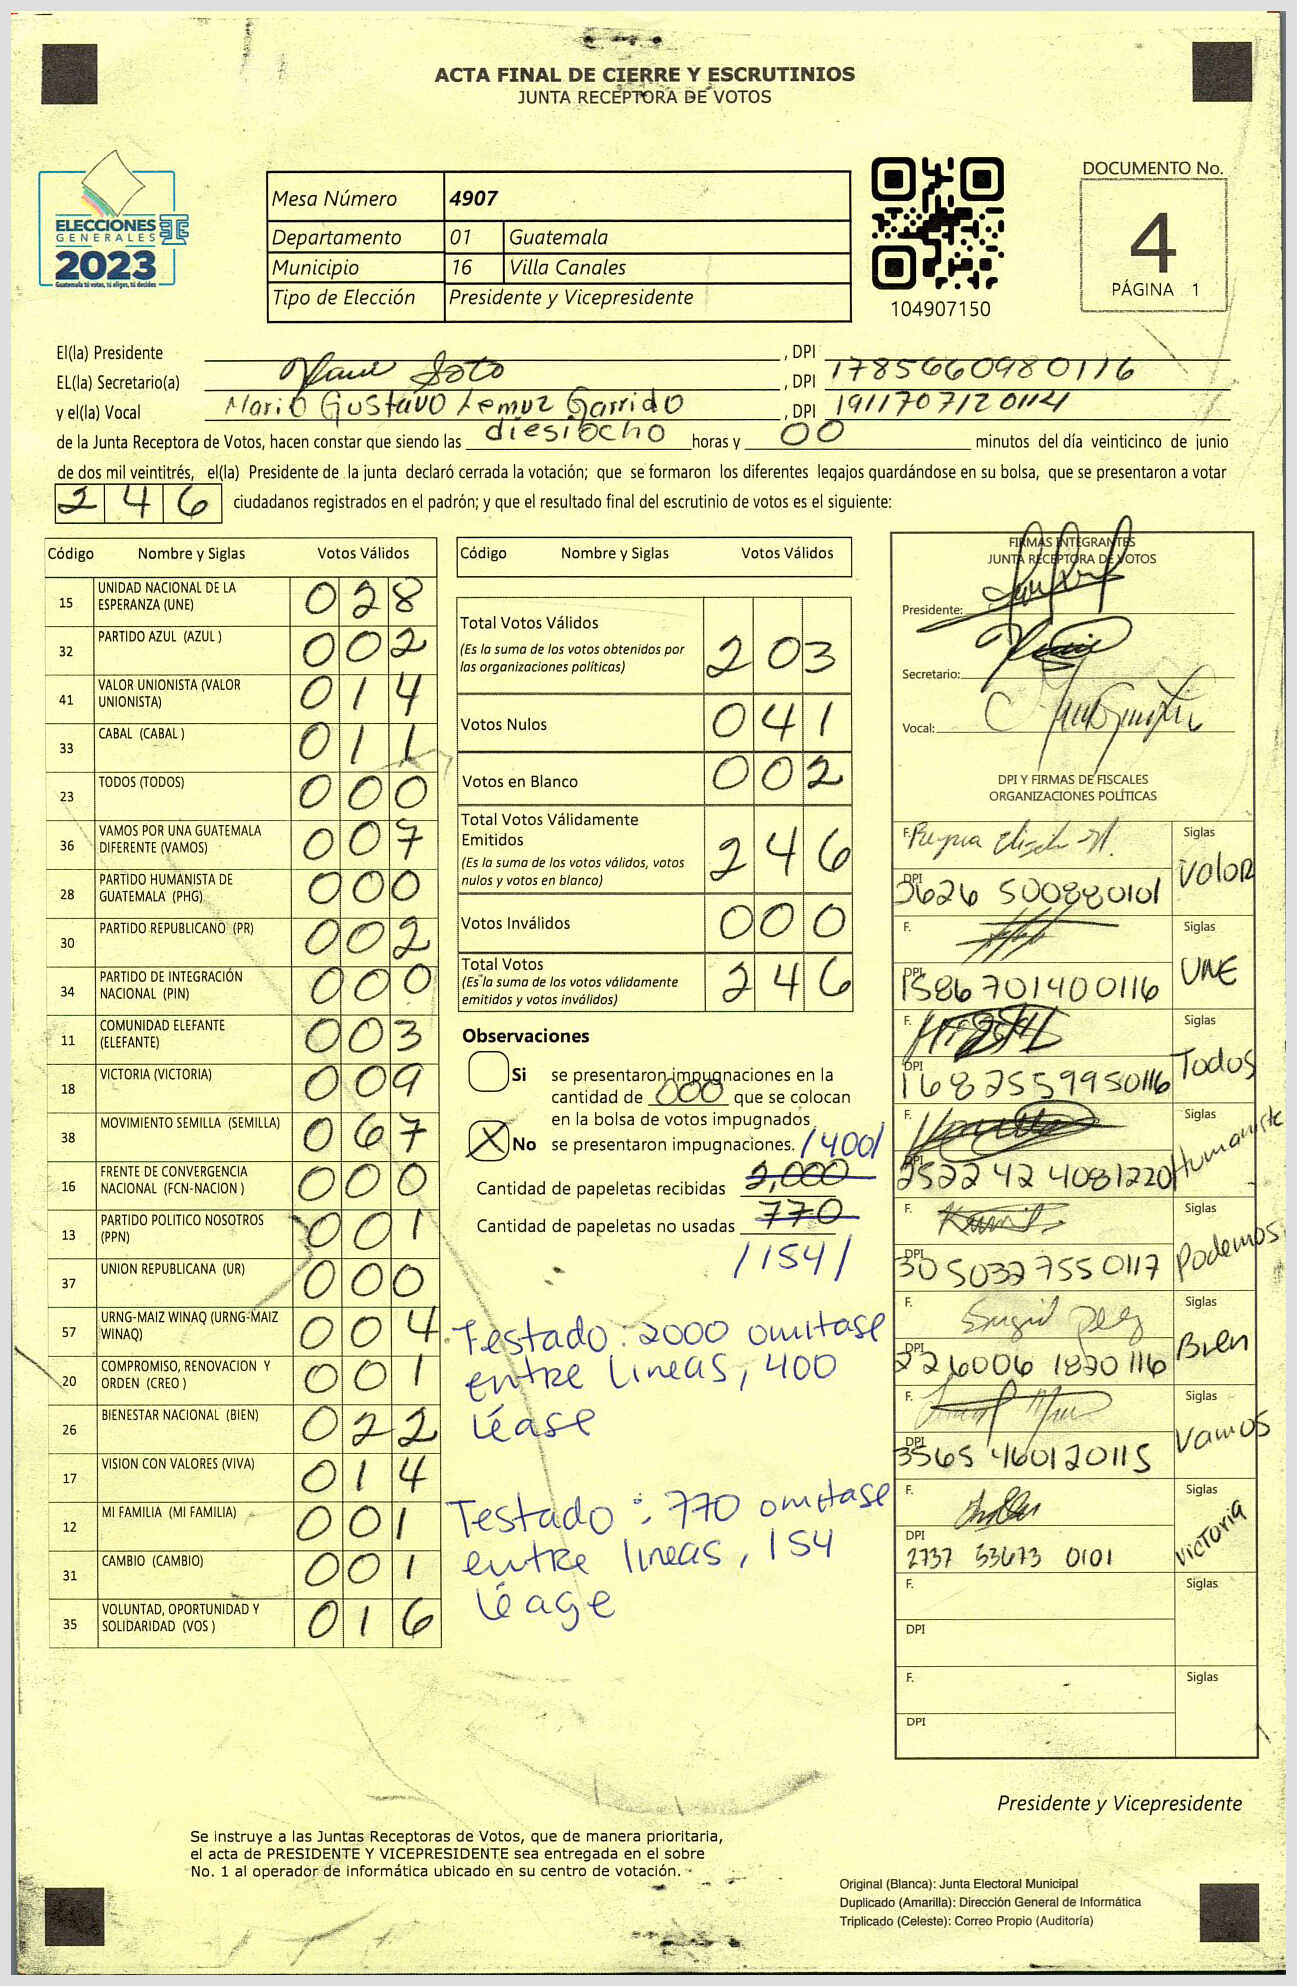 ACTA FINAL DE CIERRE Y ESCRUTINIOS
JUNTA RECEPTORA DE VOTOS
ELECCIONES
GENERALES
2023
Guatemala tú votas, tú eliges, tú decides
Mesa Número 4907
Departamento 01 Guatemala
Municipio 16 Villa Canales
Tipo de Elección Presidente y Vicepresidente
104907150
DOCUMENTO No.
4
PÁGINA 1
El(la) Presidente , DPI
EL(la) Secretario(a) Soto , DPI 1785660980116
y el(la) Vocal Mario Gustavo Lemuz Garrido , DPI 1911707120114
de la Junta Receptora de Votos, hacen constar que siendo las diesiocho horas y 00 minutos del día veinticinco de junio
de dos mil veintitrés, el(la) Presidente de la junta declaró cerrada la votación; que se formaron los diferentes legajos guardándose en su bolsa, que se presentaron a votar
246 ciudadanos registrados en el padrón; y que el resultado final del escrutinio de votos es el siguiente:
Código Nombre y Siglas Votos Válidos
15 UNIDAD NACIONAL DE LA ESPERANZA (UNE) 028
32 PARTIDO AZUL (AZUL ) 002
41 VALOR UNIONISTA (VALOR UNIONISTA) 014
33 CABAL (CABAL ) 011
23 TODOS (TODOS) 000
36 VAMOS POR UNA GUATEMALA DIFERENTE (VAMOS) 007
28 PARTIDO HUMANISTA DE GUATEMALA (PHG) 000
30 PARTIDO REPUBLICANO (PR) 002
34 PARTIDO DE INTEGRACIÓN NACIONAL (PIN) 000
11 COMUNIDAD ELEFANTE (ELEFANTE) 003
18 VICTORIA (VICTORIA) 009
38 MOVIMIENTO SEMILLA (SEMILLA) 067
16 FRENTE DE CONVERGENCIA NACIONAL (FCN-NACION ) 000
13 PARTIDO POLITICO NOSOTROS (PPN) 001
37 UNION REPUBLICANA (UR) 000
57 URNG-MAIZ WINAQ (URNG-MAIZ WINAQ) 004
20 COMPROMISO, RENOVACION Y ORDEN (CREO ) 001
26 BIENESTAR NACIONAL (BIEN) 022
17 VISION CON VALORES (VIVA) 014
12 MI FAMILIA (MI FAMILIA) 001
31 CAMBIO (CAMBIO) 001
35 VOLUNTAD, OPORTUNIDAD Y SOLIDARIDAD (VOS ) 016
Código Nombre y Siglas Votos Válidos
Total Votos Válidos 203
(Es la suma de los votos obtenidos por
las organizaciones políticas)
Votos Nulos 041
Votos en Blanco 002
Total Votos Válidamente
Emitidos 246
(Es la suma de los votos válidos, votos
nulos y votos en blanco)
Votos Inválidos 000
Total Votos 246
(Es la suma de los votos válidamente
emitidos y votos inválidos)
Observaciones
Si se presentaron impugnaciones en la
cantidad de 000 que se colocan
en la bolsa de votos impugnados
X No se presentaron impugnaciones. /400/
Cantidad de papeletas recibidas 2,000
Cantidad de papeletas no usadas 770
/154/
Testado : 2000 omitase
entre lineas, 400
léase
Testado : 770 omitase
entre lineas, 154
léage
FIRMAS INTEGRANTES
JUNTA RECEPTORA DE VOTOS
Presidente:
Secretario:
Vocal:
DPI Y FIRMAS DE FISCALES
ORGANIZACIONES POLÍTICAS
F. Siglas Valor
DPI 2626 500880101
F. Siglas UNE
DPI 1586701400116
F. Siglas Todos
DPI 1682559950116
F. Siglas Humaniste
DPI 2522 42 4081220
F. Siglas Podemos
DPI 3050327550117
F. Siglas Bien
DPI 226006 1820116
F. Siglas Vamos
DPI 3565 460120115
F. Siglas Victoria
DPI 2737 53673 0101
F. Siglas
DPI
F. Siglas
DPI
Presidente y Vicepresidente
Se instruye a las Juntas Receptoras de Votos, que de manera prioritaria,
el acta de PRESIDENTE Y VICEPRESIDENTE sea entregada en el sobre
No. 1 al operador de informática ubicado en su centro de votación.
Original (Blanca): Junta Electoral Municipal
Duplicado (Amarilla): Dirección General de Informática
Triplicado (Celeste): Correo Propio (Auditoría)